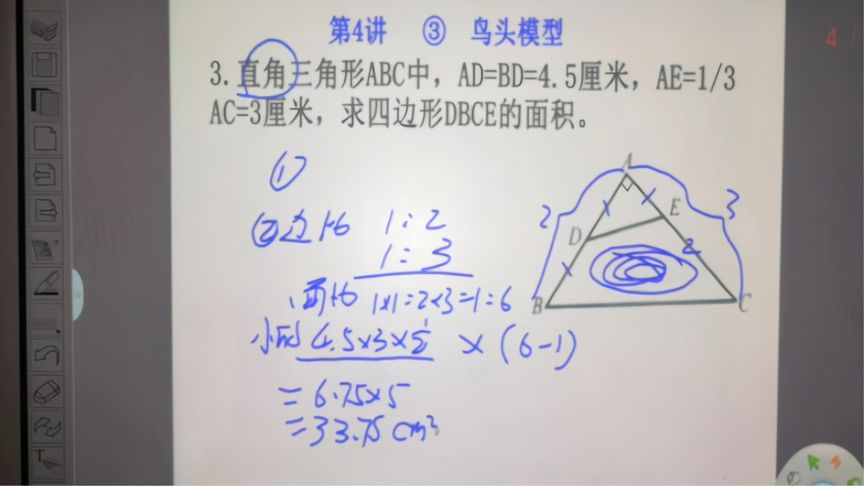 第4讲 ③ 鸟头模型
3. 直角三角形ABC中，AD=BD=4.5厘米，AE=1/3
AC=3厘米，求四边形DBCE的面积。
①
②边比 1:2
1:3
面比 1×1:2×3=1:6
小面 4.5×3×½ ×(6-1)
=6.75×5
=33.75 cm²
A
2
3
E
D
2
B
C
4
T